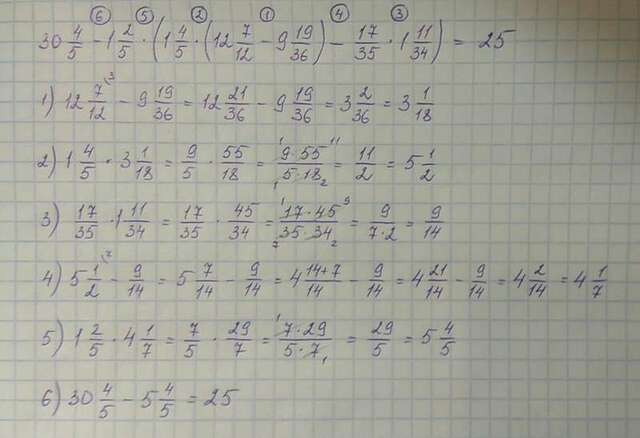 ⑥ ⑤ ② ① ④ ③
30 4/5 - 1 2/5 · (1 4/5 · (12 7/12 - 9 19/36) - 17/35 · 1 11/34) = 25
1) 12 7/12 \3 - 9 19/36 = 12 21/36 - 9 19/36 = 3 2/36 = 3 1/18
2) 1 4/5 · 3 1/18 = 9/5 · 55/18 = 1 9·55 11 / 1 5·18 2 = 11/2 = 5 1/2
3) 17/35 · 1 11/34 = 17/35 · 45/34 = 1 17·45 9 / 7 35·34 2 = 9/7·2 = 9/14
4) 5 1/2 \7 - 9/14 = 5 7/14 - 9/14 = 4 14+7/14 - 9/14 = 4 21/14 - 9/14 = 4 2/14 = 4 1/7
5) 1 2/5 · 4 1/7 = 7/5 · 29/7 = 1 7·29 / 5·7 1 = 29/5 = 5 4/5
6) 30 4/5 - 5 4/5 = 25